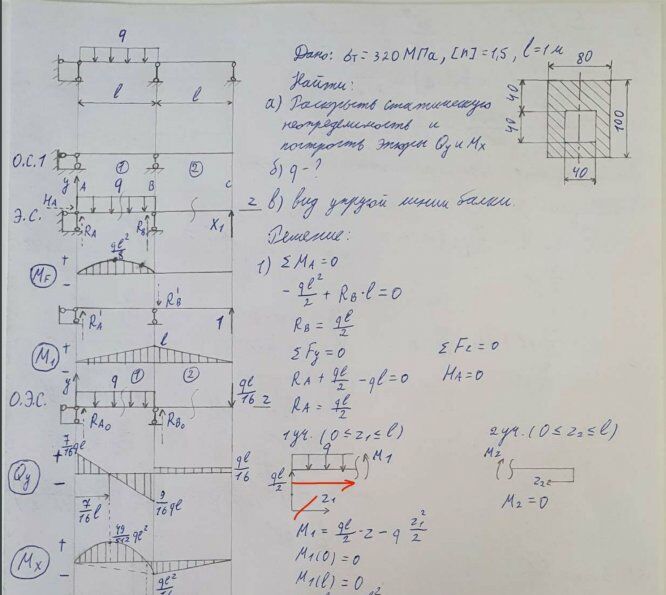 q
l
l
О.С.1
1
2
y
A
q
1
B
2
C
z
Э.С.
HA
RA
RB
X1
ql²/8
MF
+
−
RA'
RB'
1
M1
+
−
l
y
q
1
2
ql/16
z
О.Э.С.
RA0
RB0
7/16 ql
Qy
+
−
ql/16
7/16 l
9/16 ql
49/512 ql²
Mx
+
−
ql²/16
Дано: σт = 320 МПа, [n] = 1,5, l = 1 м
Найти:
а) Раскрыть статическую
неопределимость и
построить эпюры Qy и Mx
б) q - ?
в) вид упругой линии балки.
80
40
40
100
40
Решение:
1) ΣMA = 0
- ql²/2 + RB·l = 0
RB = ql/2
ΣFy = 0
ΣFz = 0
RA + ql/2 - ql = 0
HA = 0
RA = ql/2
1 уч. (0 ≤ z1 ≤ l)
2 уч. (0 ≤ z2 ≤ l)
q
M1
ql/2
z1
M2
z2
M1 = ql/2·z - q z1²/2
M2 = 0
M1(0) = 0
M1(l) = 0